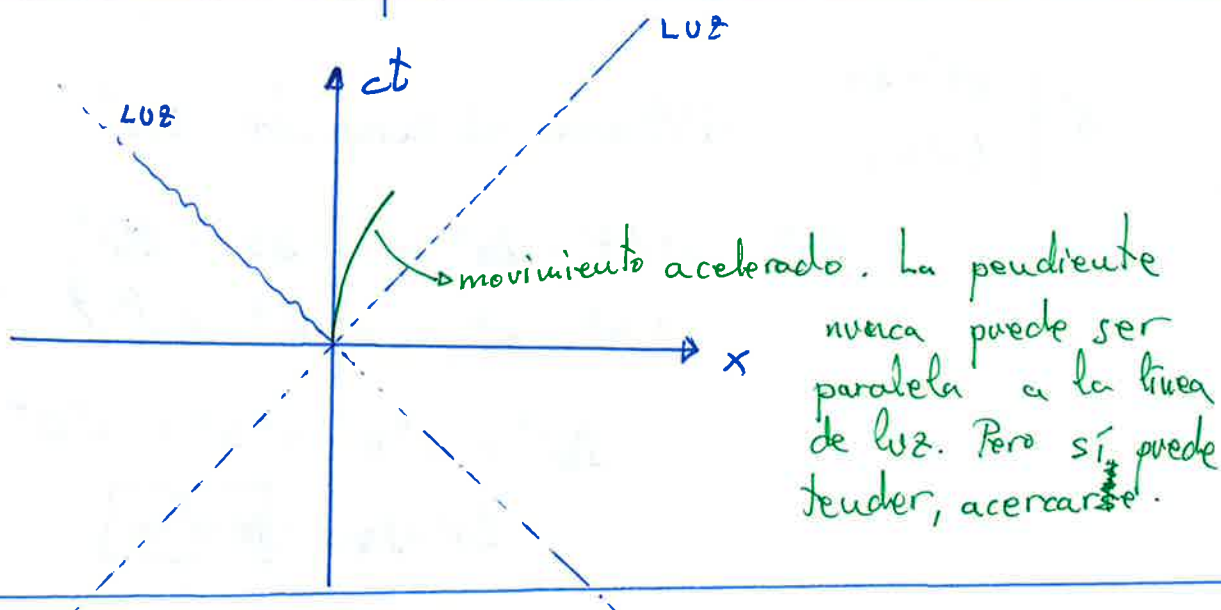 LUZ
ct
LUZ
movimiento acelerado. La pendiente
nunca puede ser
x
paralela a la línea
de luz. Pero sí puede
tender, acercarse.